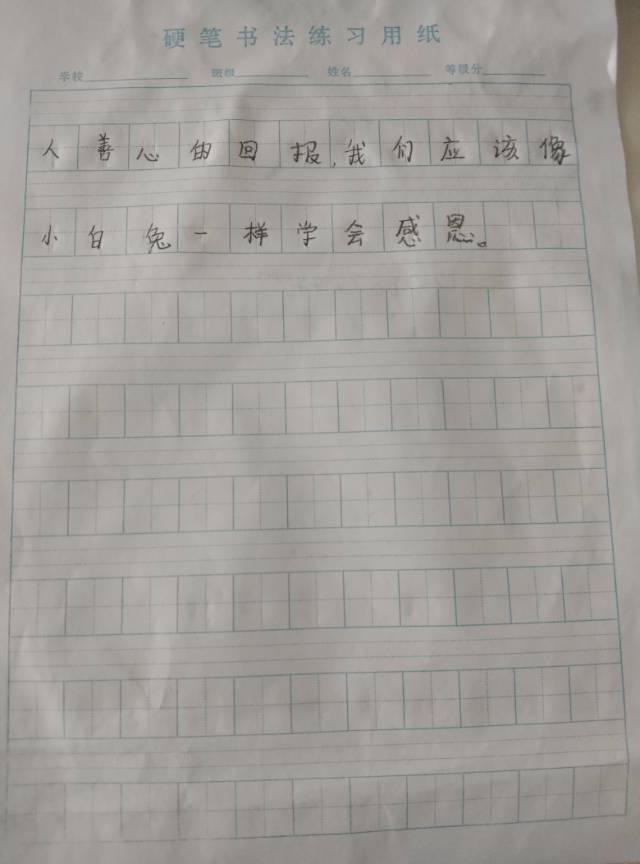 硬笔书法练习用纸
学校 班级 姓名 等级分
人善心的回报,我们应该像
小白兔一样学会感恩。